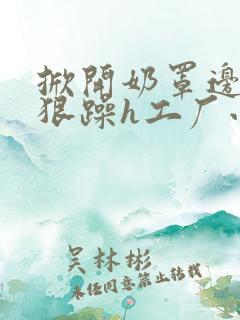 掀開奶罩邊
狠躁h工厂、
吴林彬
未经同意禁止转载